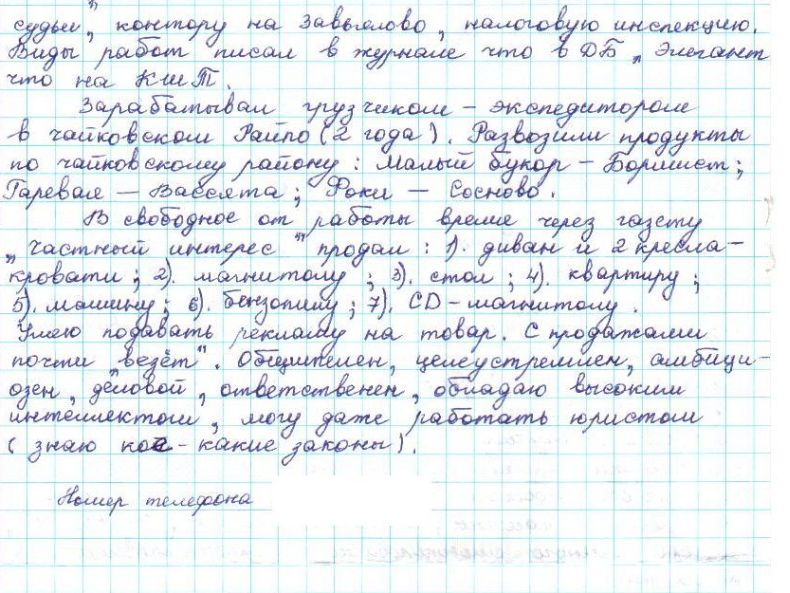 судьи", контору на Завьялово, налоговую инспекцию.
Виды работ писал в журнале что в ДБ „Элегант
что на КШТ.
Зарабатывал грузчиком - экспедитором
в чайковском Райпо (2 года). Развозили продукты
по чайковскому району: Малый букор - Бормист;
Гаревая — Вассята; Фоки — Сосново.
В свободное от работы время через газету
„частный интерес" продал: 1). диван и 2 кресла-
кровати; 2). магнитолу; 3). стол; 4). квартиру;
5). машину; 6). бензопилу; 7). CD-магнитолу.
Умею подавать рекламу на товар. С продажами
почти „везёт". Общителен, целеустремлен, амбици-
озен, деловой, ответственен, обладаю высоким
интеллектом, могу даже работать юристом
(знаю кое-какие законы).
Номер телефона